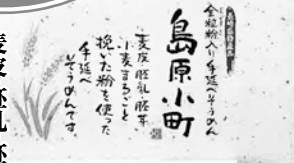 全粒粉入り手延べそうめん
島原小町
麦皮・胚乳・胚芽
小麦まるごと
挽いた粉を使った
手延べ
そうめんです。
麦皮・胚乳・胚